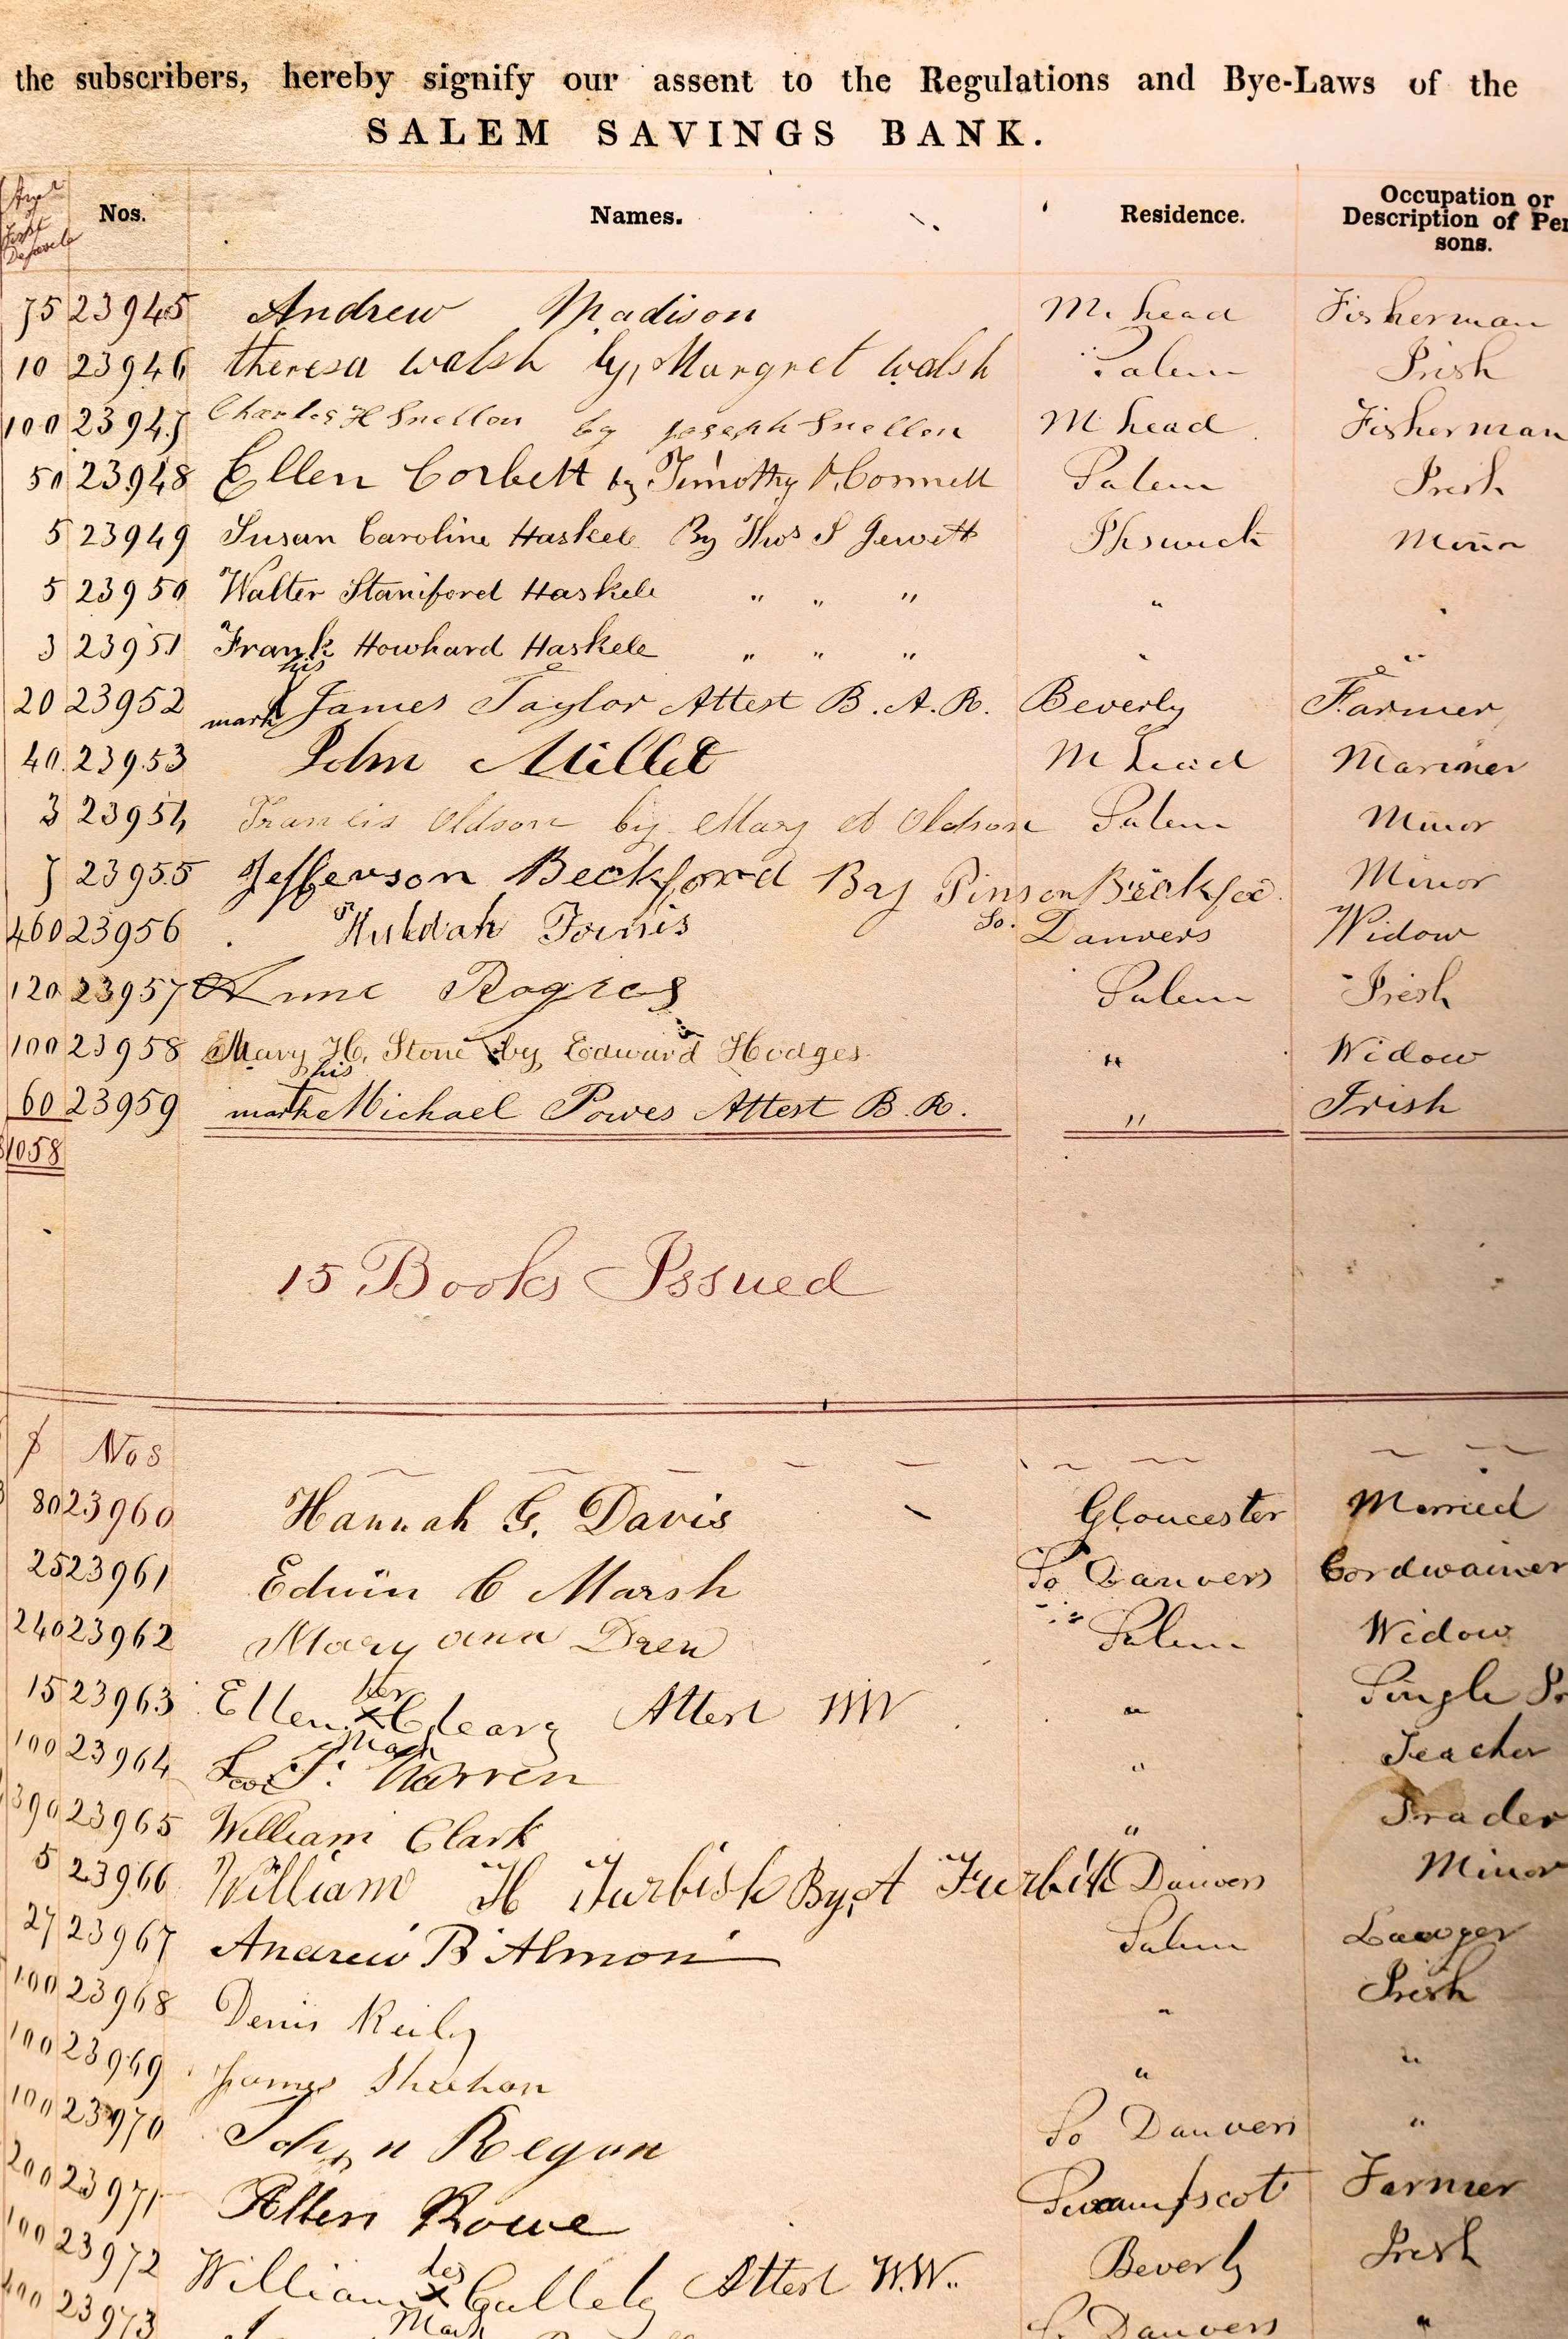 the subscribers, hereby signify our assent to the Regulations and Bye-Laws of the
SALEM SAVINGS BANK.
First Nos. Names. Residence. Occupation or Description of Per sons.
75 23945 Andrew Madison M. head Fisherman
10 23946 theresa walsh by, Margret walsh Salem Irish
100 23947 Charles H Snellon by Joseph Snellon M head Fisherman
50 23948 Ellen Corbett by Timothy Salem Irish
5 23949 Susan Caroline Haskell By Thos S Jewett Ipswich Minor
5 23950 Walter Staniford Haskell " " " " "
3 23951 Frank Howhard Haskell " " " " "
20 23952 his mark James Taylor Attest B. A. R. Beverly Farmer
40 23953 John Millet M head Mariner
3 23954 Francis Oldson by Mary A Oldson Salem Minor
7 23955 Jefferson Beckford By Pinson Minor
460 23956 Huldah So. Danvers Widow
120 23957 Anne Salem Irish
100 23958 Mary H. Stone by Edward Hodges " Widow
60 23959 his mark Michael Powes Attest B. R. " Irish
1058
15 Books Issued
$ Nos
80 23960 Hannah G. Davis Gloucester Married
25 23961 Edwin C Marsh So Danvers Cordwainer
240 23962 Mary ann Drew Salem Widow
15 23963 Ellen her x mark Cleary Attest WW " Single
100 23964 T. Warren " Teacher
390 23965 William Clark " Trader
5 23966 William H Furbish By A Furbish Danvers Minor
27 23967 Andrew B Almon Salem Lawyer
100 23968 Denis Reily " Irish
100 23969 James Sheehan " "
100 23970 John Regan So Danvers "
200 23971 Allen Rowe Swampscot Farmer
100 23972 William his x Mark Attest W.W. Beverly Irish
23973 So Danvers "